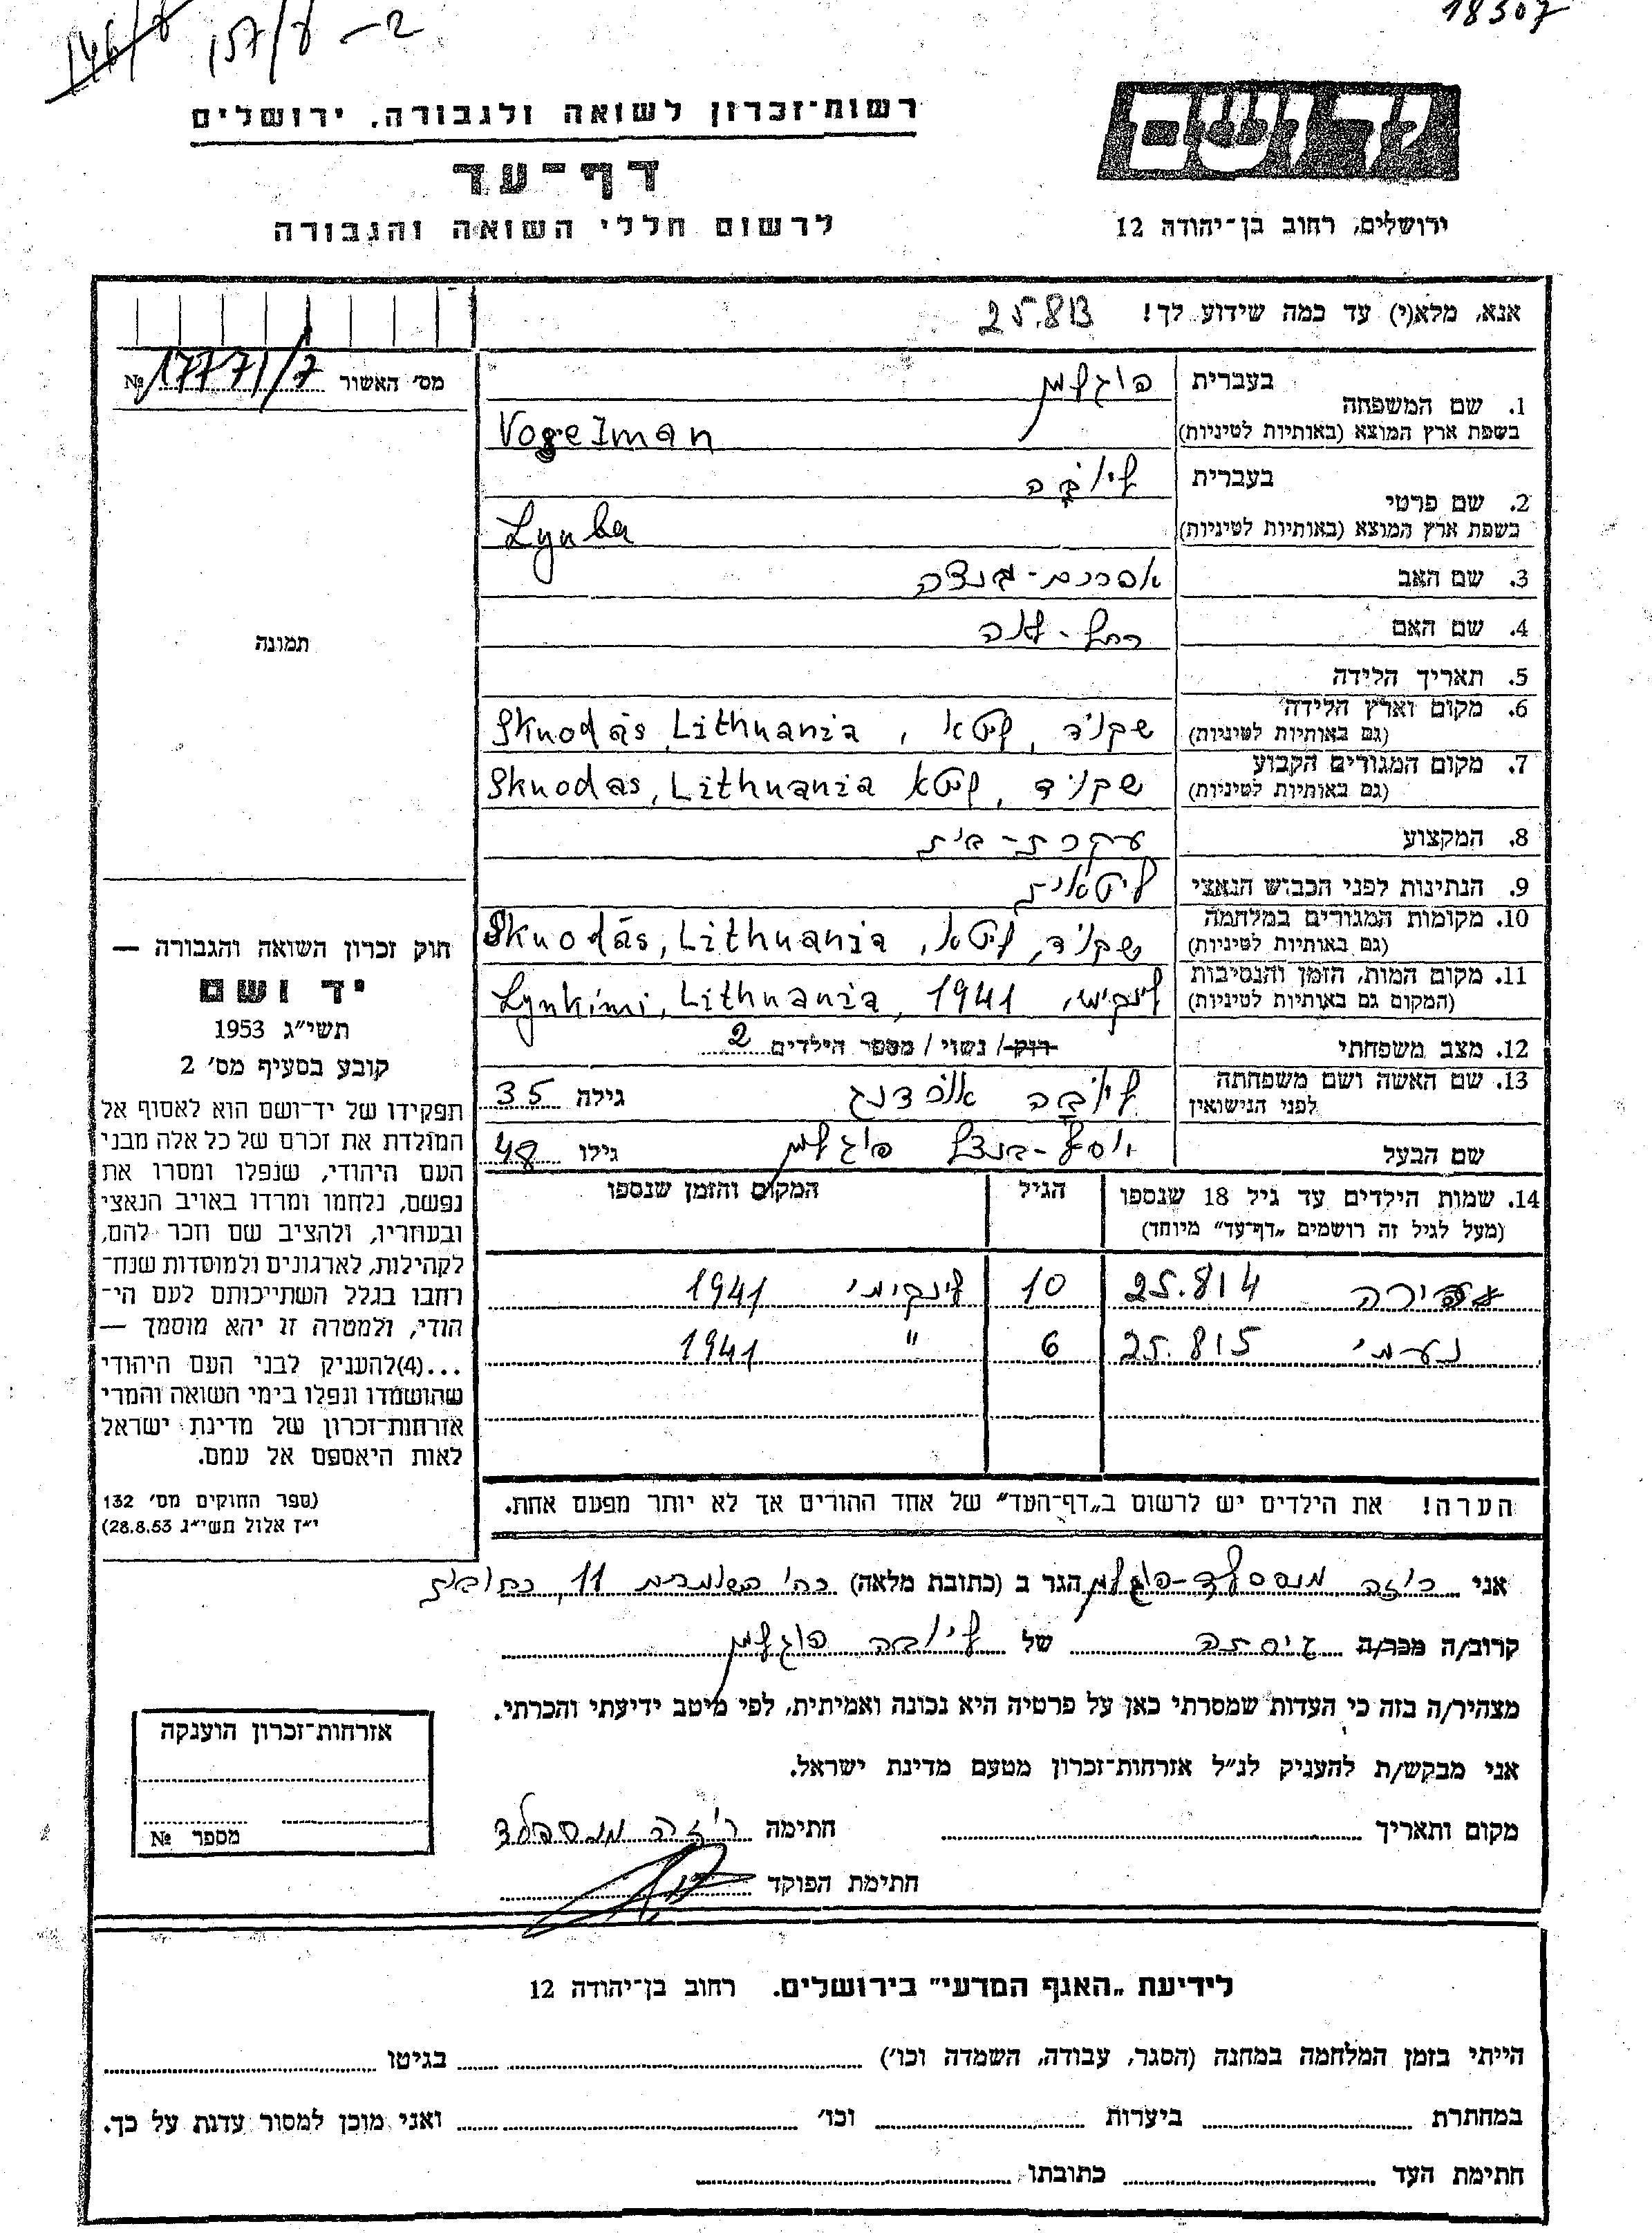 146/7 157/7 – 2
18307
רשות־זכרון לשואה ולגבורה, ירושלים
דף־עד
לרשום חללי השואה והגבורה
יד ושם
ירושלים, רחוב בן־יהודה 12
אנא, מלא(י) עד כמה שידוע לך! 25.813
מס׳ האשור 17771/7 №
תמונה
1. שם המשפחה
בעברית פוגלמן
בשפת ארץ המוצא (באותיות לטיניות) Vogelman
2. שם פרטי
בעברית ליובה
בשפת ארץ המוצא (באותיות לטיניות) Lyuba
3. שם האב
4. שם האם רחל-לאה
5. תאריך הלידה
6. מקום וארץ הלידה
(גם באותיות לטיניות) שקוד, ליטא, Skuodas, Lithuania
7. מקום המגורים הקבוע
(גם באותיות לטיניות) שקוד, ליטא Skuodas, Lithuania
8. המקצוע עקרת-בית
9. הנתינות לפני הכבוש הנאצי ליטאית
10. מקומות המגורים במלחמה
(גם באותיות לטיניות) שקוד, ליטא, Skuodas, Lithuania
11. מקום המות, הזמן והנסיבות
(המקום גם באותיות לטיניות) לינקימי, Lynkimi, Lithuania, 1941
12. מצב משפחתי רוק/ נשוי / מספר הילדים 2
13. שם האשה ושם משפחתה
לפני הנישואין ליובה גילה 35
שם הבעל יוסף-הנצל פוגלמן גילו 48
14. שמות הילדים עד גיל 18 שנספו הגיל המקום והזמן שנספו
(מעל לגיל זה רושמים „דף־עד״ מיוחד)
25.814 10 לינקימי 1941
נעמי 25.815 6 " 1941
הערה! את הילדים יש לרשום ב„דף־העד״ של אחד ההורים אך לא יותר מפעם אחת.
חוק זכרון השואה והגבורה —
יד ושם
תשי״ג 1953
קובע בסעיף מס׳ 2
תפקידו של יד־ושם הוא לאסוף אל
המולדת את זכרם של כל אלה מבני
העם היהודי, שנפלו ומסרו את
נפשם, נלחמו ומרדו באויב הנאצי
ובעוזריו, ולהציב שם וזכר להם,
לקהילות, לארגונים ולמוסדות שנח־
רחבו בגלל השתייכותם לעם הי־
הודי, ולמטרה זו יהא מוסמך —
...(4)להעניק לבני העם היהודי
שהושמדו ונפלו בימי השואה והמרי
אזרחות־זכרון של מדינת ישראל
לאות היאספם אל עמם.
(ספר החוקים מס׳ 132
י״ז אלול תשי״ג 28.8.53)
אני ריזה מנספלד-פוגלמן הגר ב (כתובת מלאה) 11, רחובות
קרוב/ה מכר/ה גיסתה של ליובה פוגלמן
מצהיר/ה בזה כי העדות שמסרתי כאן על פרטיה היא נכונה ואמיתית, לפי מיטב ידיעתי והכרתי.
אני מבקש/ת להעניק לנ״ל אזרחות־זכרון מטעם מדינת ישראל.
מקום ותאריך חתימה ריזה מנספלד
חתימת הפוקד
אזרחות־זכרון הוענקה
מספר №
לידיעת „האגף המדעי״ בירושלים. רחוב בן־יהודה 12
הייתי בזמן המלחמה במחנה (הסגר, עבודה, השמדה וכו׳) בגיטו
במחתרת ביערות וכו׳ ואני מוכן למסור עדות על כך.
חתימת העד כתובתו